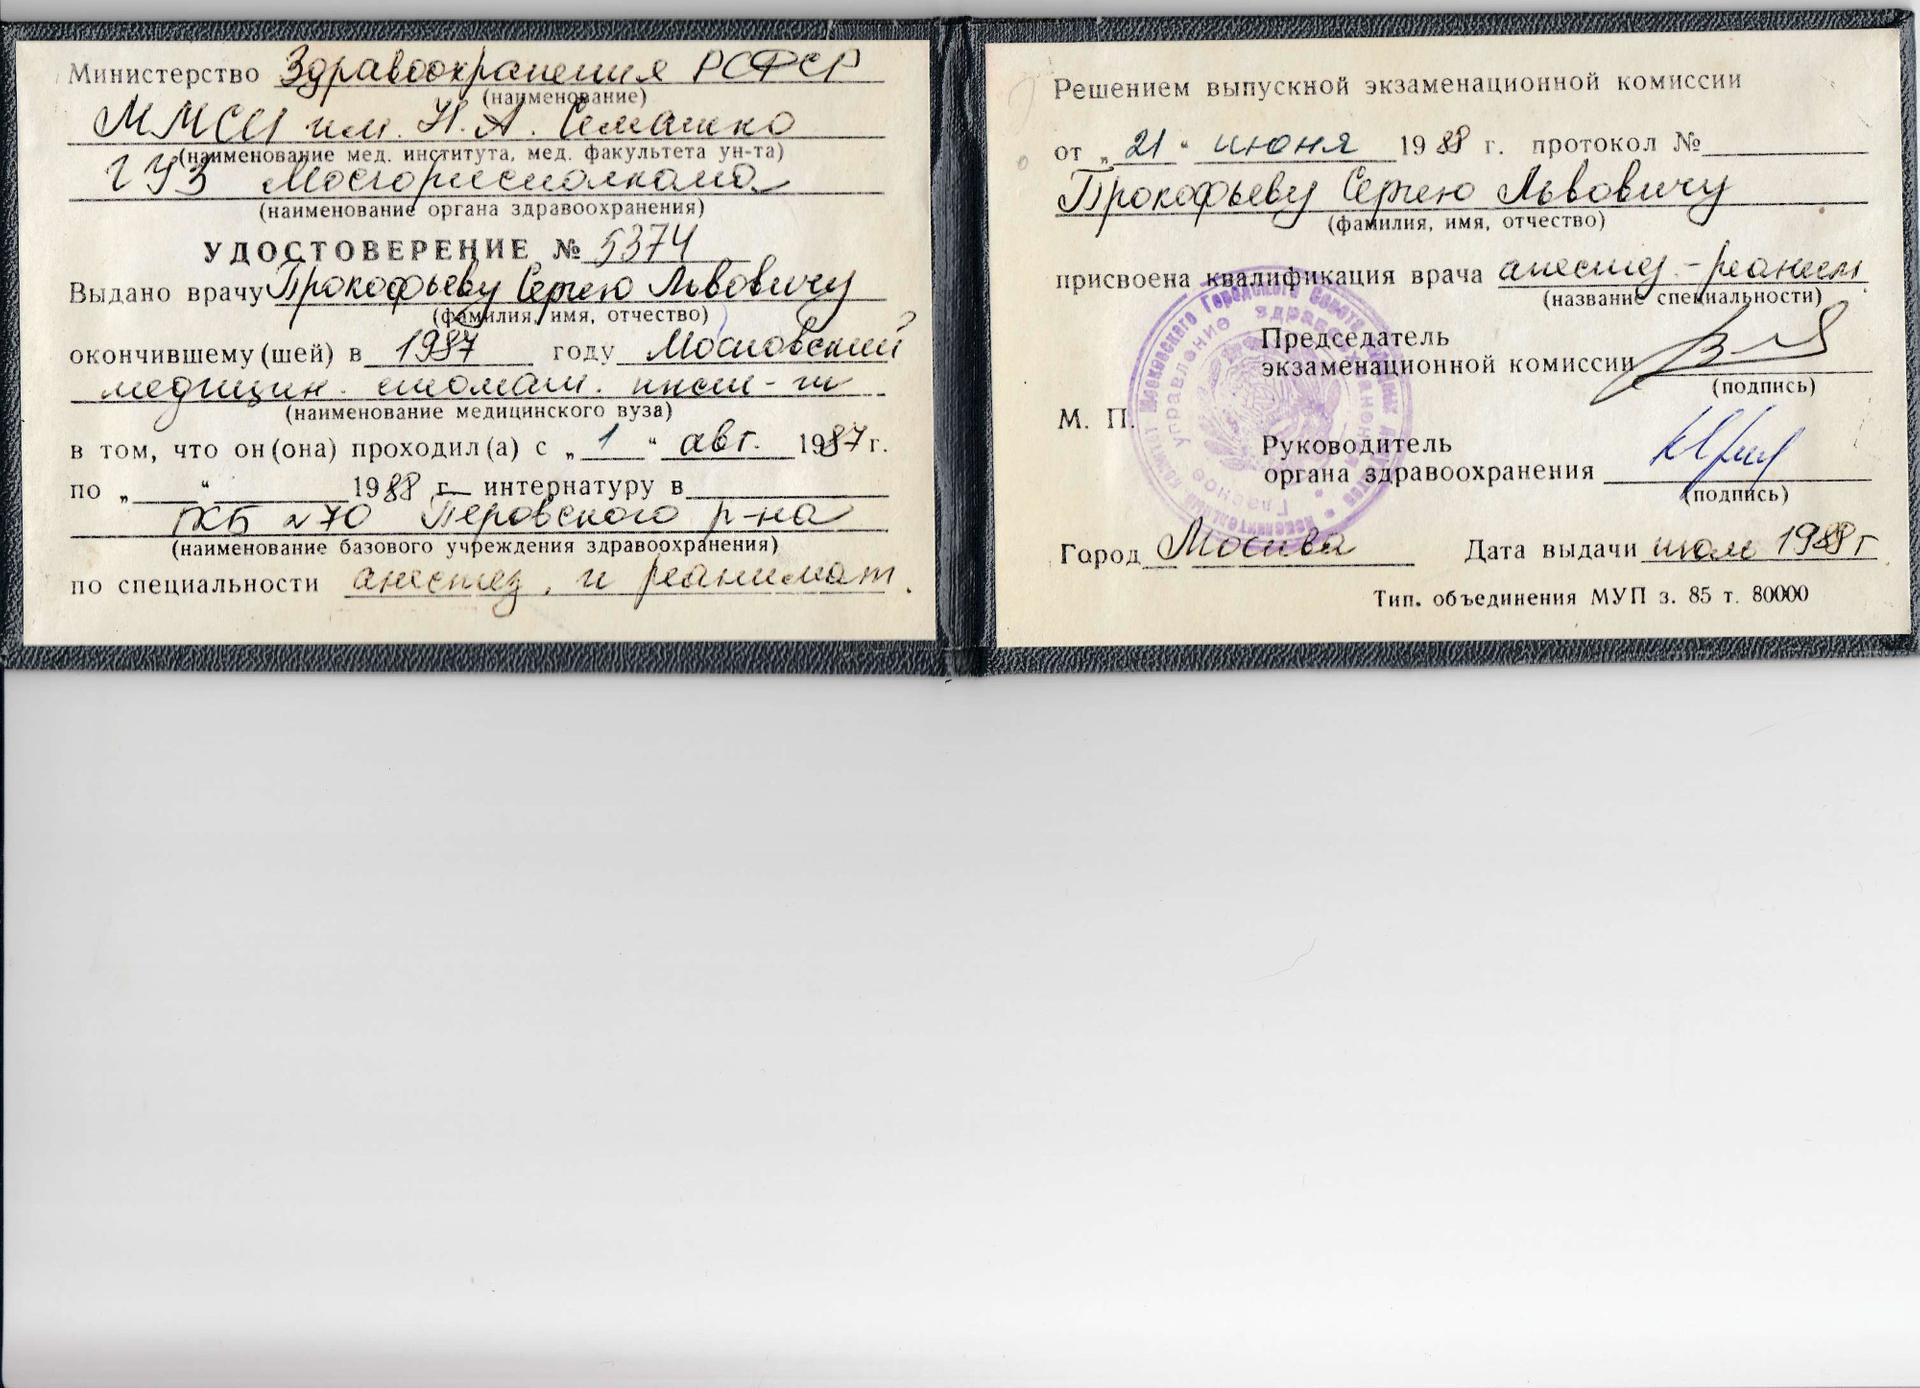 Министерство Здравоохранения РСФСР
(наименование)
ММСИ им. Н.А. Семашко
(наименование мед. института, мед. факультета ун-та)
ГУЗ Мосгорисполкома
(наименование органа здравоохранения)
УДОСТОВЕРЕНИЕ № 5374
Выдано врачу Прокофьеву Сергею Львовичу
(фамилия, имя, отчество)
окончившему (шей) в 1987 году Московский
медицин. стомат. инст-т
(наименование медицинского вуза)
в том, что он (она) проходил (а) с „1“ авг. 1987 г.
по „ “ 1988 г. интернатуру в
ГКБ №70 Перовского р-на
(наименование базового учреждения здравоохранения)
по специальности анестез. и реанимат.
Решением выпускной экзаменационной комиссии
от „21“ июня 1988 г. протокол №
Прокофьеву Сергею Львовичу
(фамилия, имя, отчество)
присвоена квалификация врача анестез.-реаним
(название специальности)
Председатель
экзаменационной комиссии
(подпись)
М. П.
Руководитель
органа здравоохранения
(подпись)
Город Москва Дата выдачи июль 1988 г
Тип. объединения МУП з. 85 т. 80000
Главное управление здравоохранения